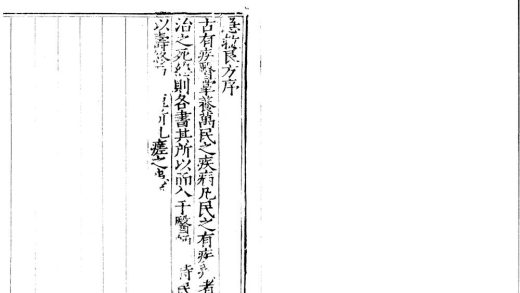 急救良方序
古有疾醫掌養萬民之疾病凡民之有疾者
治之死終則各書其所以而入于醫師民
以壽終所札瘥之